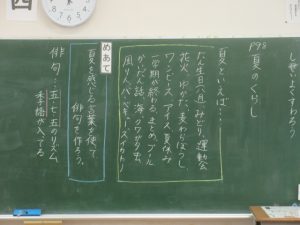 しせいよくすわろう
P98 夏のくらし
夏といえば…
たん生日（八月）、みどり、運動会
花火、ゆかた、麦わらぼうし、
ワンピース、アイス、夏休み
一学期が終わる、まとめ、プール
かいだん話、海、クワガタ虫、
風りん、バーベキュー、スイカわり
めあて
夏を感じる言葉を使って、
俳句を作ろう。
俳句…五・七・五のリズム
季語が入ってる